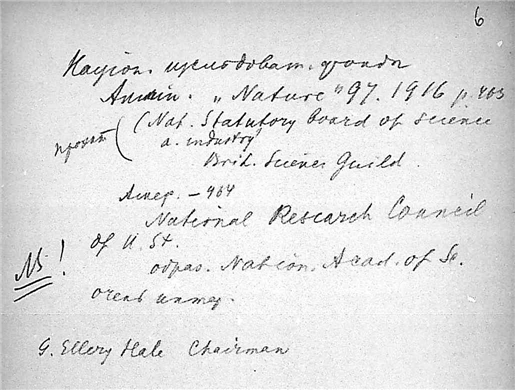 6
Национ. исследоват. фонды
Англии. „Nature" 97. 1916 p. 403
проект (Nat. Statutory Board of Science
a. industry
Brit. Science Guild.
Амер. – 464
National Research Council
of U. St.
NB!
образ. Nation. Acad. of Sc.
очень интер.
G. Ellery Hale Chairman